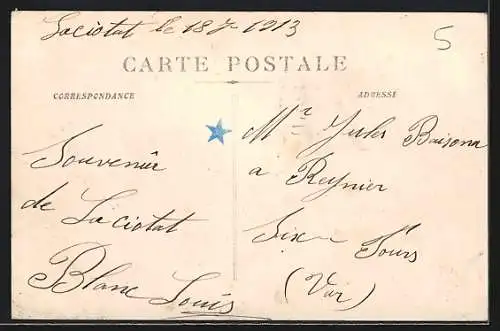 Laciotat le 18 7 1913
5
CARTE POSTALE
CORRESPONDANCE
ADRESSE
Souvenir
de Laciotat
Blanc Louis
Mr Jules Baisona
a Reynier
Six Fours
(Var)